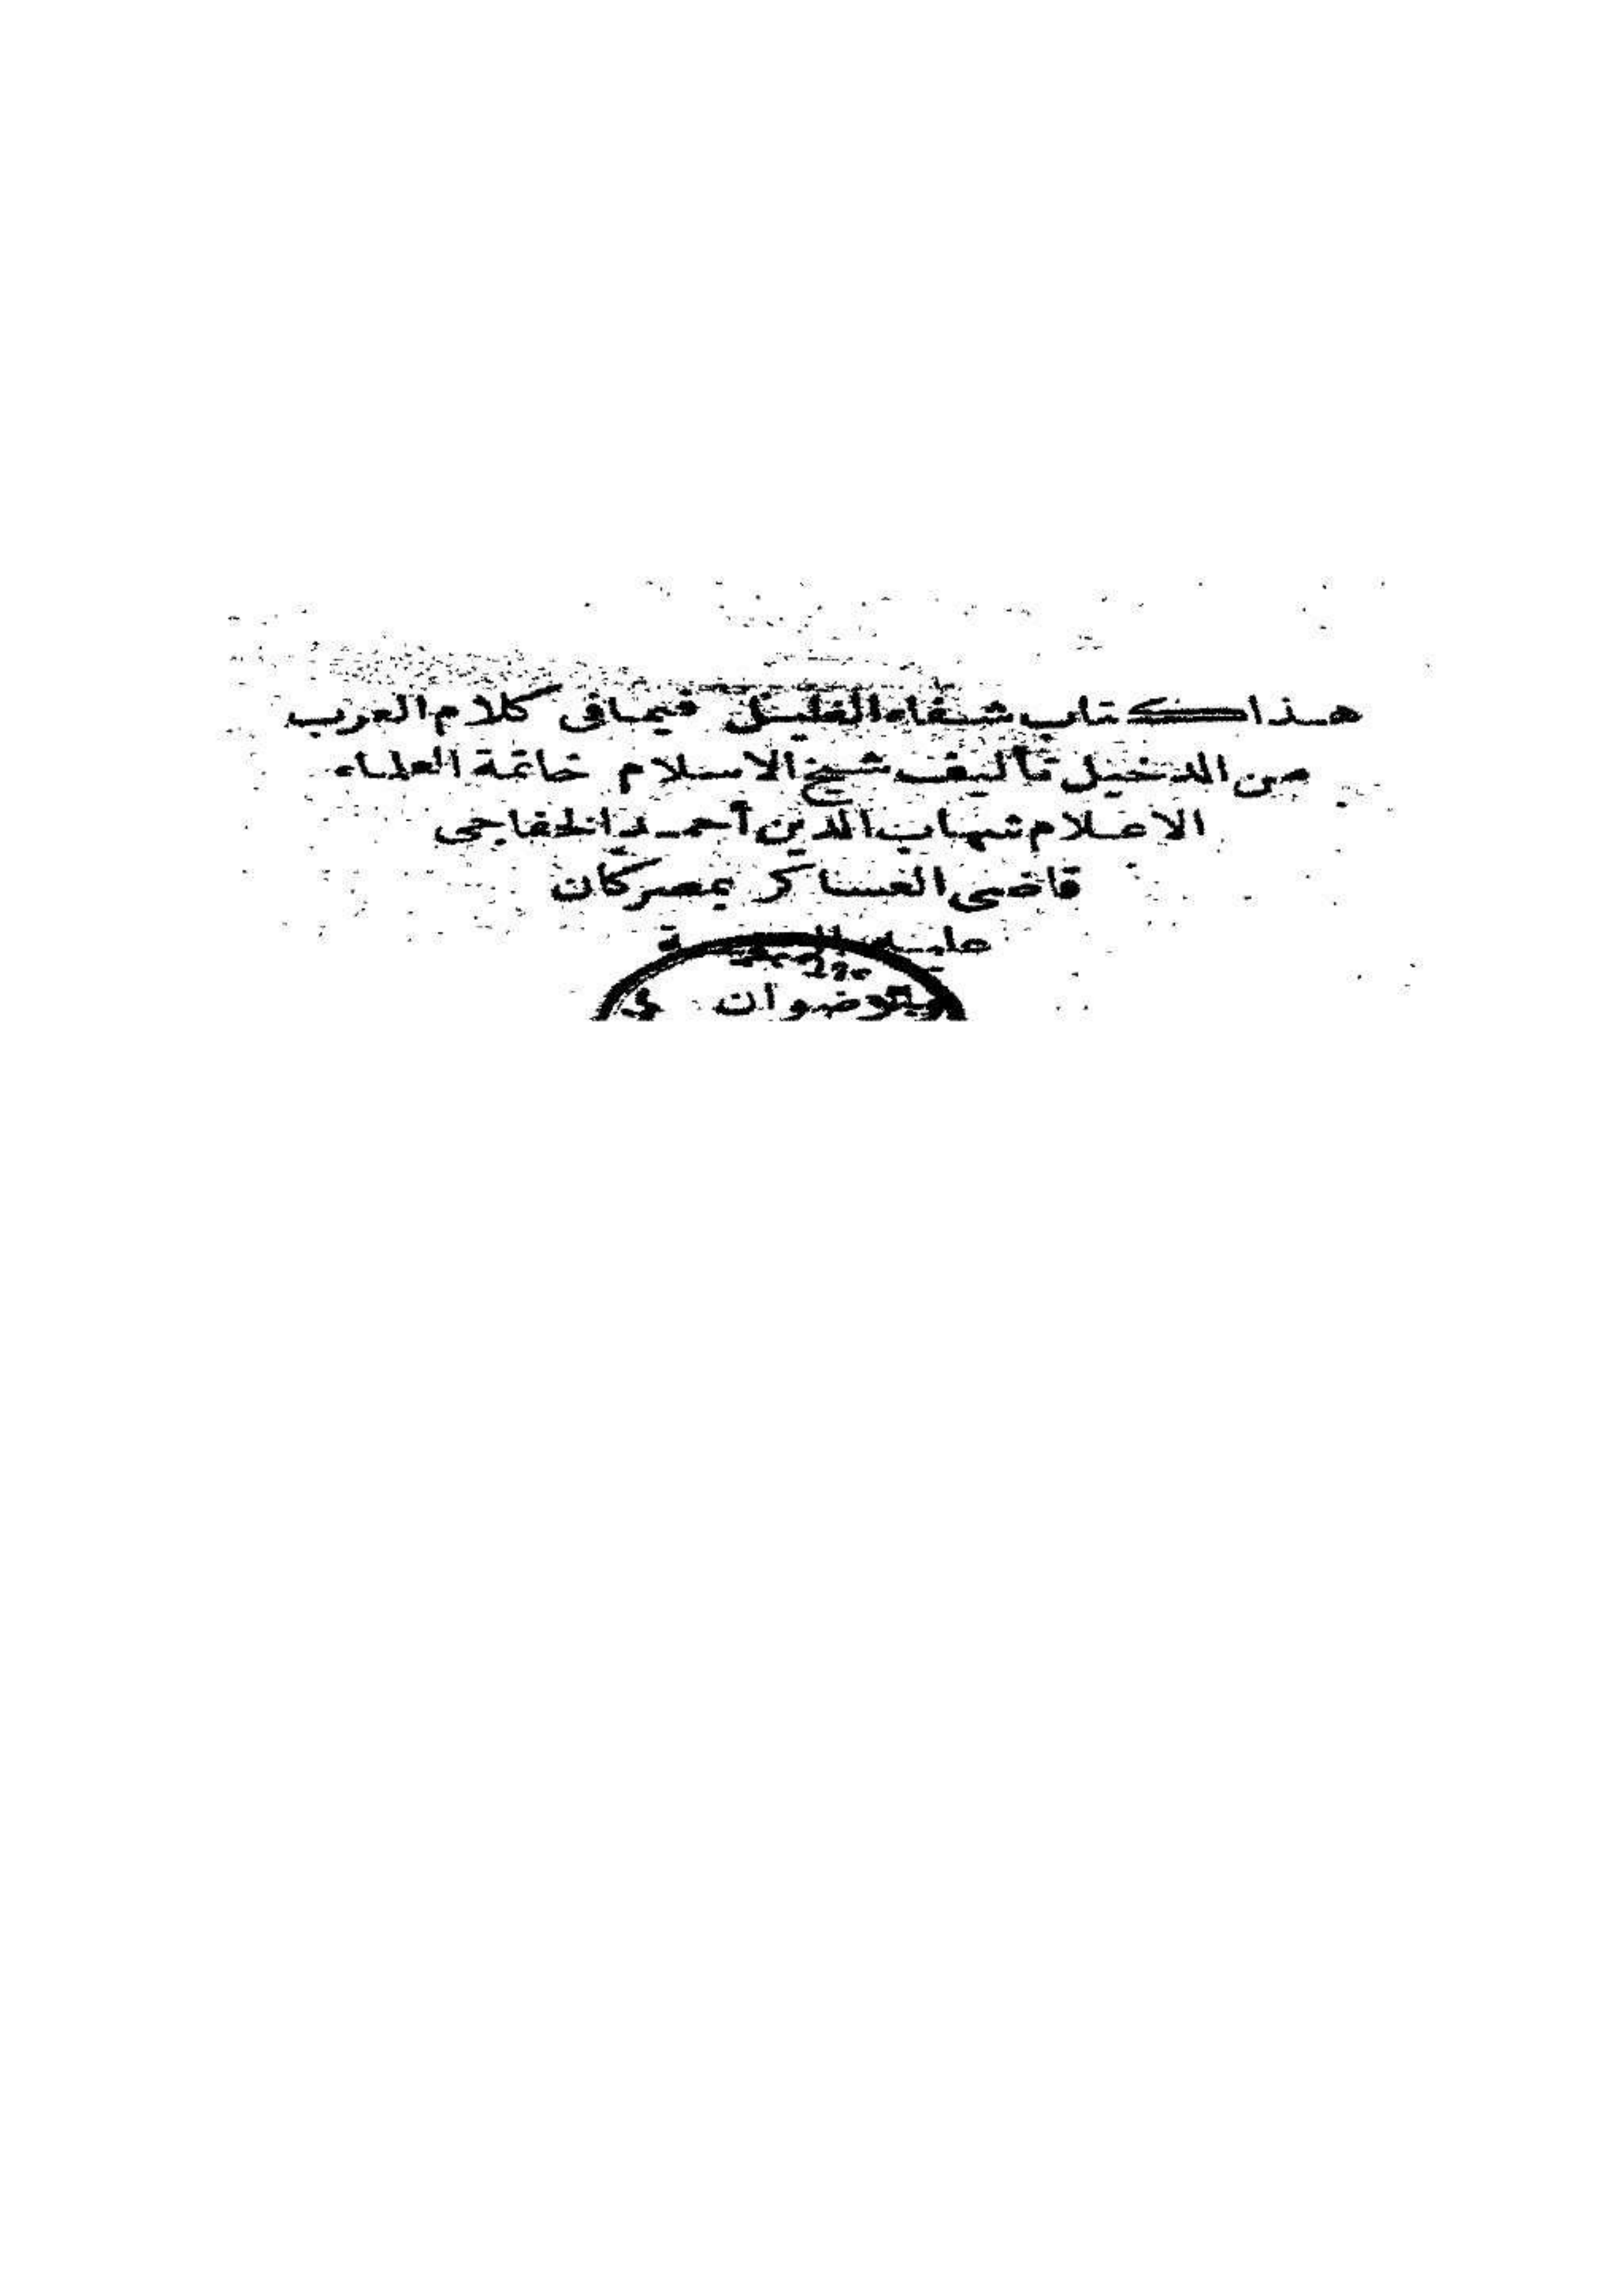 هذا كتاب شفاء الغليل فيما فى كلام العرب
من الدخيل تأليف شيخ الاسلام خاتمة العلماء
الاعلام شهاب الدين أحمد الخفاجى
قاضى العساكر بمصر كان
عليه
والرضوان